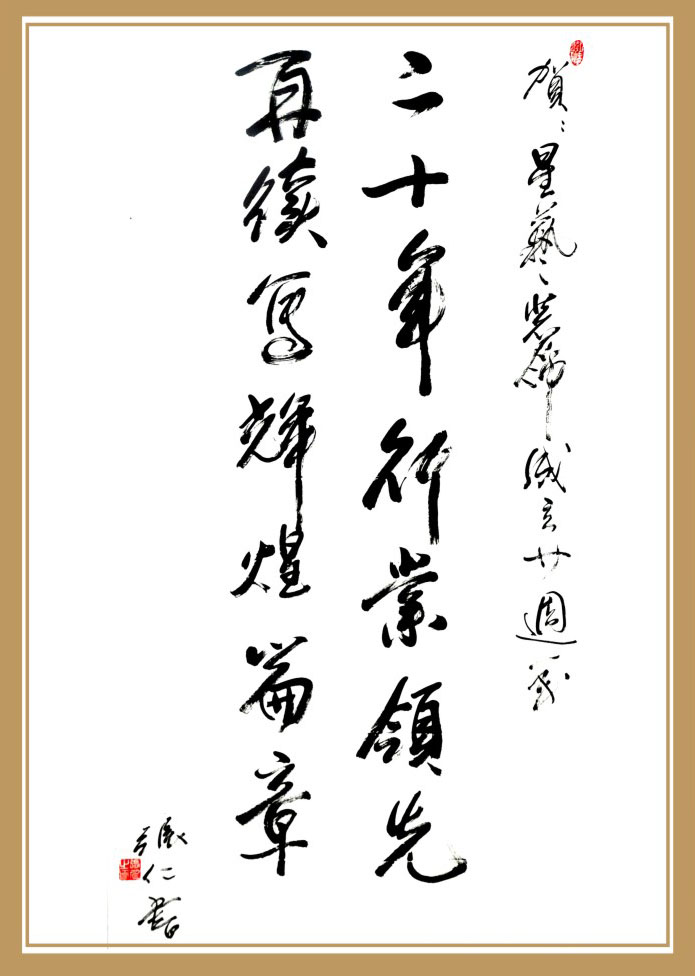 賀：星藝裝飾成立廿週歲
二十年行業領先
再續寫輝煌篇章
張仁書